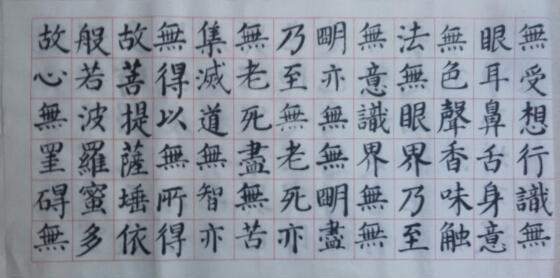 無受想行識無
眼耳鼻舌身意
無色聲香味触
法無眼界乃至
無意識界無無
眀亦無無眀盡
乃至無老死亦
無老死盡無苦
集滅道無智亦
無得以無所得
故菩提薩埵依
般若波羅蜜多
故心無罣碍無